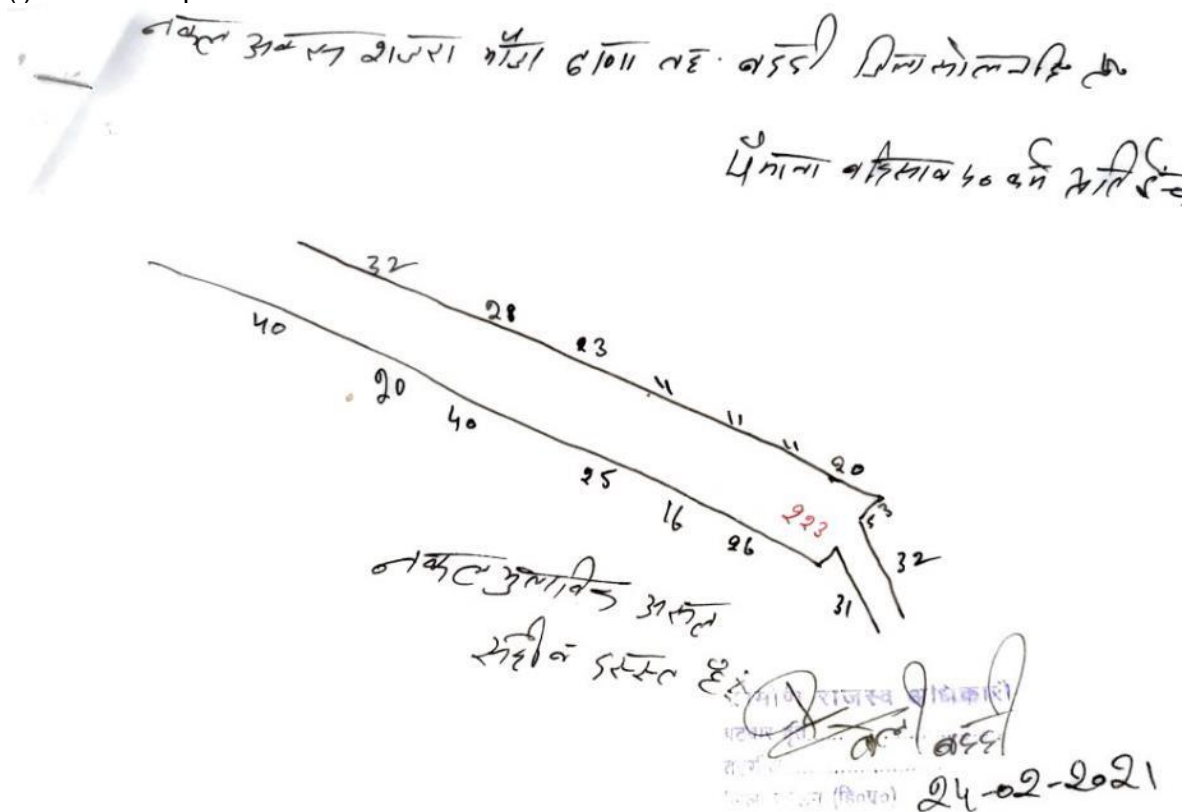 नकल अक्स शजरा मौजा ठाणा तह. बद्दी जिला सोलन हि प्र
पैमाना बहिसाब 40 कर्म प्रति इंच
32
28
23
11
11
11
20
3
5
32
40
20
40
25
16
26
223
31
नकल मुताबिक असल
सही व दरुस्त है।
राजस्व अधिकारी
बद्दी
(हि0प्र0)
24-02-2021